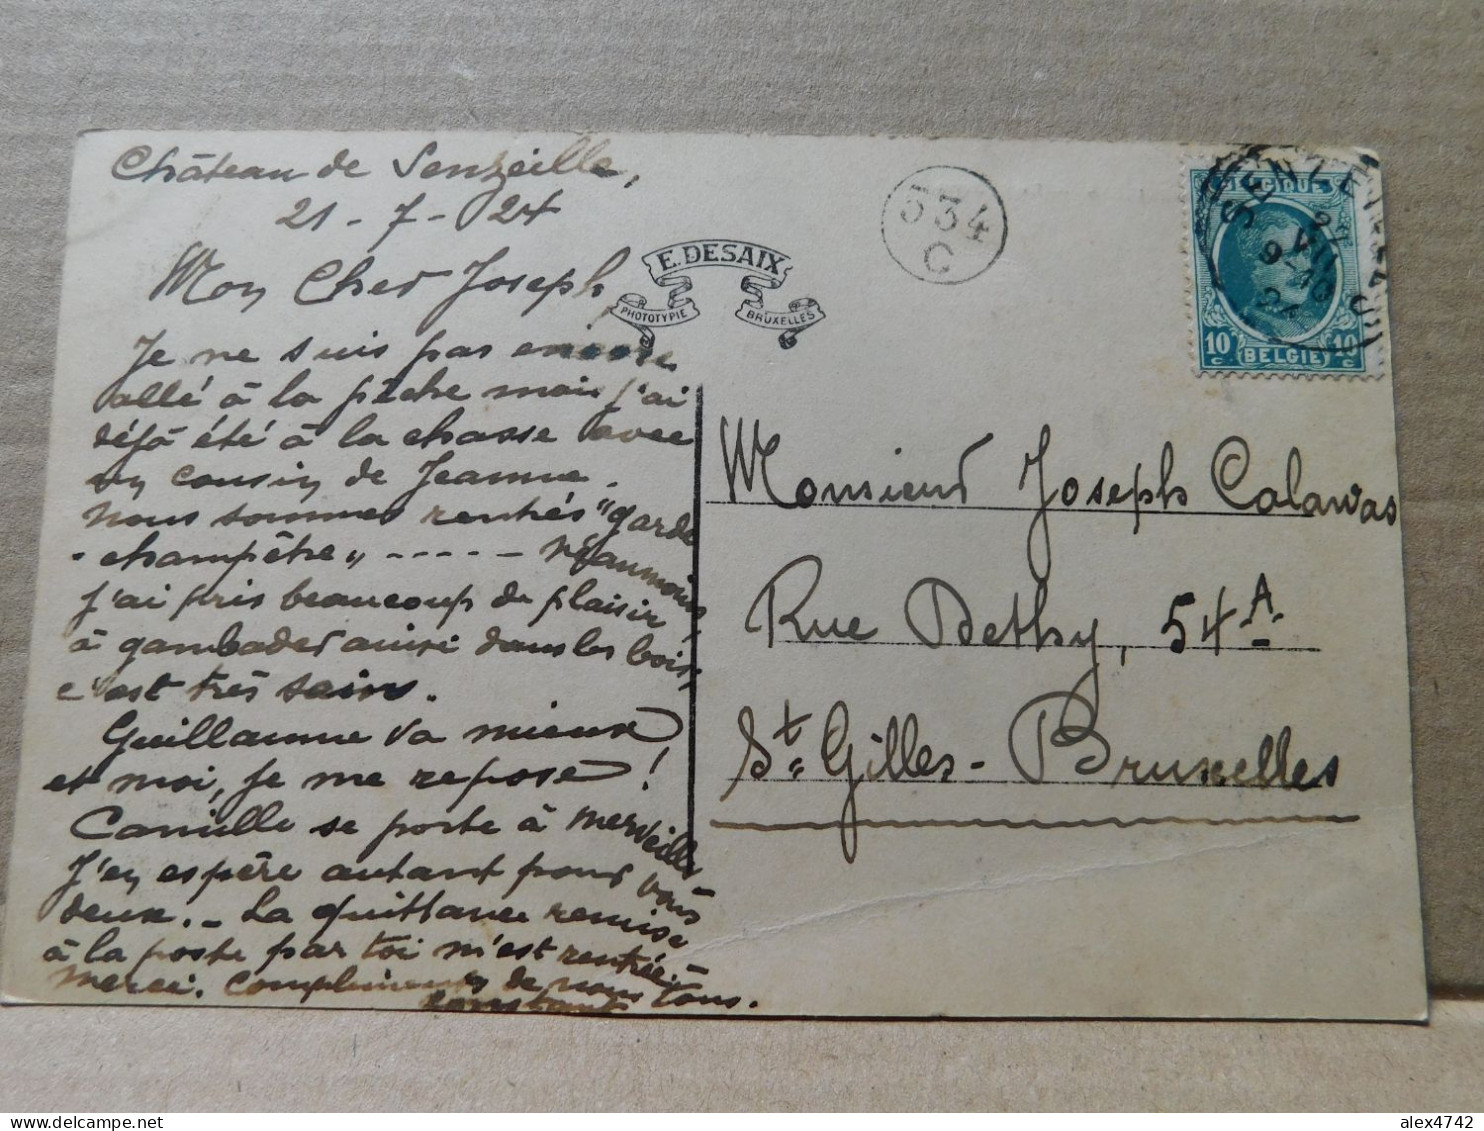 Château de Senzeille,
21 - 7 - 24
Mon Cher Joseph
Je ne suis pas encore
allé à la pêche mais j'ai
déjà été à la chasse avec
un cousin de Jeanne.
Nous sommes rentrés "garde
-champêtre„ ----- Néanmoins,
j'ai pris beaucoup de plaisir
à gambader ainsi dans les bois,
c'est très sain.
Guillaume va mieux
et moi, je me repose!
Camille se porte à merveille
J'en espère autant pour vous
deux. - La quittance remise
à la poste par toi m'est rentrée. -
Merci. Compliments de nous tous.
Constant
E. DESAIX
PHOTOTYPIE BRUXELLES
534
C
BELGIQUE
SENZEILLE
21
VII
9-10
24
10 c BELGIE 10 c
Monsieur Joseph Calawas
Rue Dethy, 54A
St. Gilles - Bruxelles
alex4742